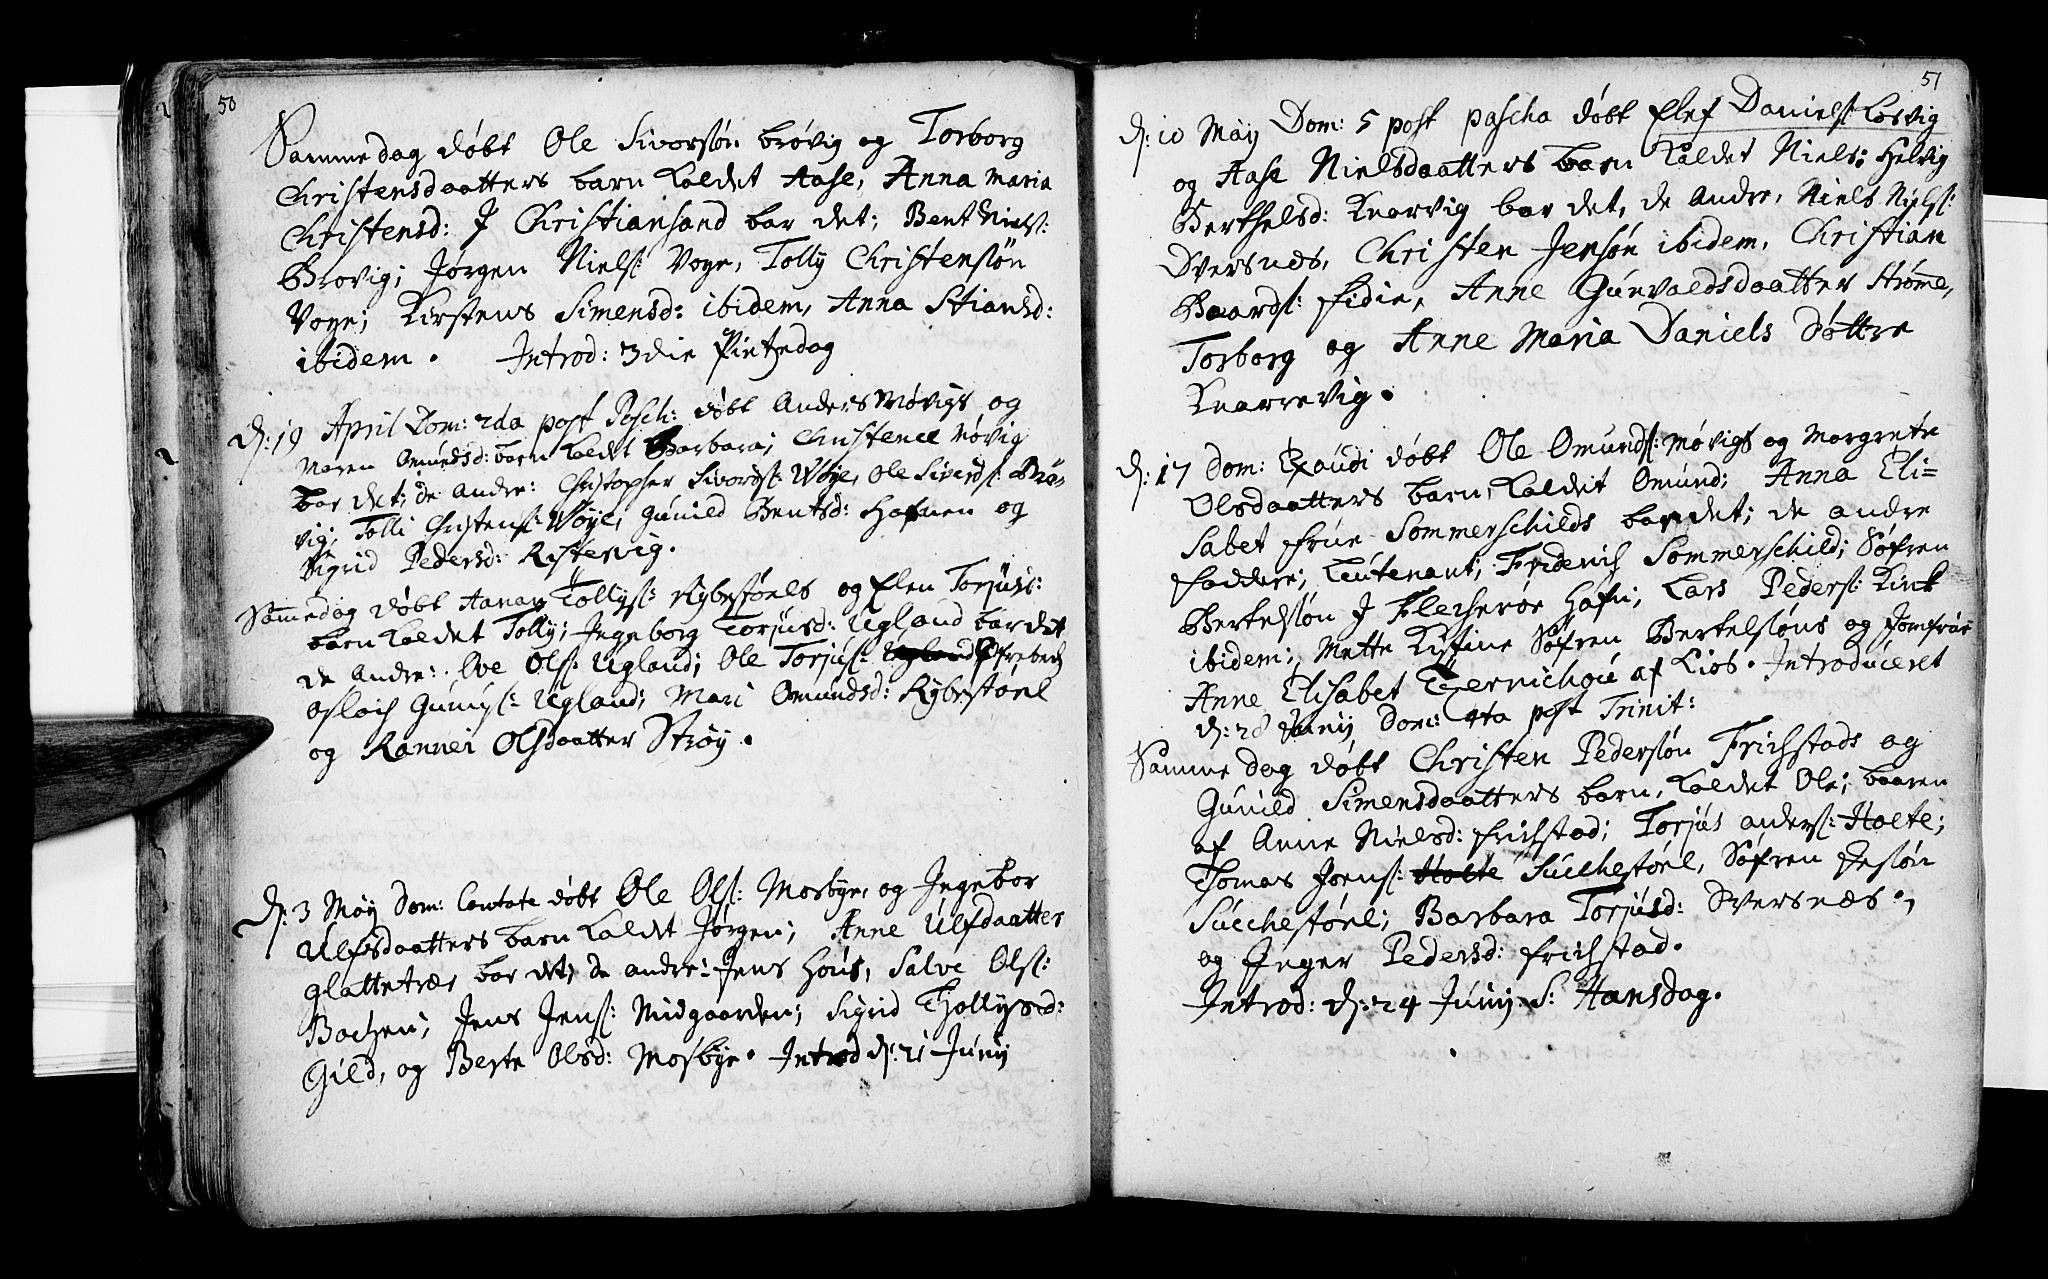 50
Samme dag døbt Ole Sivorsøn brøvig og Torborg
Christensdaatters barn kaldet Aase, Anna Maria
Christensd: J Christiansand bar det; Bent Niels:
Brovig; Jørgen Niels: Voye, Tolly Christensøn
Voye; Kirstens Simensd: ibidem, Anna Stiansd:
ibidem. Introd: 3die Pintzedag
d: 19 April Dom: 2da post Pasch: døbt Anders Møvigs og
Maren Omundsd: barn kaldt Barbara; Christence Møvig
bar det; de andre: Christopher Sivords: Vøye, Ole Siverds: Brø-
vig; Tolli Christens: Vøye, Gunild Bentsd: Hafnen og
Sigrid Pedersd: Rostevig.
Sammedag døbt Aanan Tollys: Rybestøels og Elen Torjuss:
barn kaldet Tolly; Ingeborg Torjusd: Ugland bar det
de Andre: Ove Ols: Ugland; Ole Torjus: Ugland
Osloch Gunys: Ugland; Mari Omundsd: Rybestøel
og Rannei Olsdaatter Strøy.
d: 3 Maÿ Dom: Cantate døbt Ole Ols: Mosbye, og Ingebor
Ulfsdaatters barn kaldet Jørgen; Anne Ulfsdaatter
Glattetræ, bar det; de andre: Jens Hous, Salve Ols:
Bachen; Jens Jens: Midgaarden; Sigrid Thollysd:
Gild, og Berte Olsd: Mosbye. Introd d: 21 Junij
51
d: 10 Maÿ Dom: 5 post pascha døbt Elef Daniels: Kosvig
og Aase Nielsdaatters barn kaldet Niels; Helvig
Berthelsd: Knarvig bar det, de andre, Niels Niels:
Dversnes, Christen Jensøn ibidem, Christian
Baards: Fidie, Anne Gunvaldsdaatter Strømme,
Torborg og Anne Maria Daniels Døttre
Knarrevig.
d: 17 Dom: Exaudi døbt Ole Omunds: Møvigs og Margrete
Olsdaatters barn, kaldet Omund; Anna Eli=
sabet frue Sommerschilds bar det; de andre
Faddere; Leutenant; Friderich Sommerschild; Søfren
Bertelsøn J Flecherøe Hafn; Lars Peders: Kink
ibidem; Mette Kistine Søfren Bertelsøns og Jomfrue
Anne Elisabet Tzernichou af Kios. Introduceret
d: 28 Junij Dom: 4ta post Trinit:
Samme dag døbt Christen Pedersøn Frichstads og
Gunild Simensdaatters barn, kaldet Ole; baaren
af Anne Nielsd: Frichstad; Torjus anders: Holte;
Thomas Jens: Holte Suchestøel, Søfren Jesøn
Suchestøel; Barbara Torjusd: Dversnes.,
og Inger Pedersd: Frichstad.
Introd: d: 24 Junij S: Hansdag.